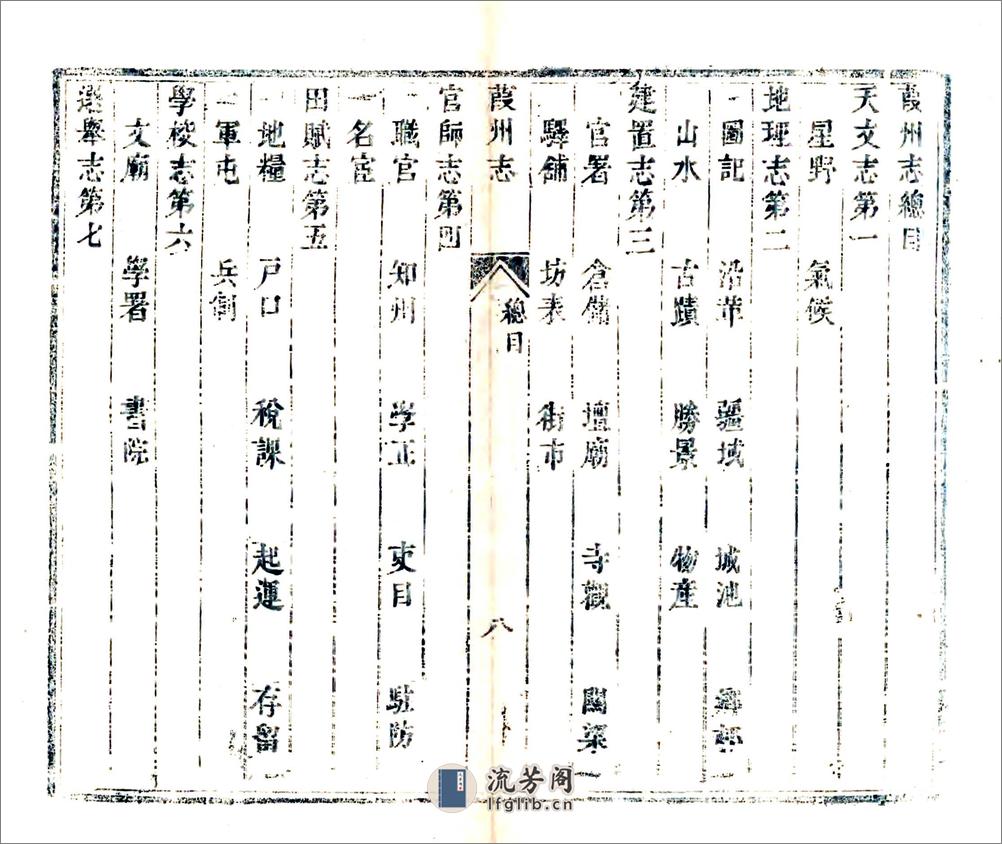 葭州志總目
天文志第一
星野 氣候
地理志第二
圖記 沿革 疆域 城池 鄉都
山水 古蹟 勝景 物産
建置志第三
官署 倉儲 壇廟 寺觀 關梁
驛舖 坊表 街市
葭州志 總目 八
官師志第四
職官 知州 学正 吏目 駐防
名宦
田賦志第五
地糧 戸口 稅課 起運 存留
軍屯 兵餉
學校志第六
文廟 學署 書院
選舉志第七
流芳阁
lfglib.cn